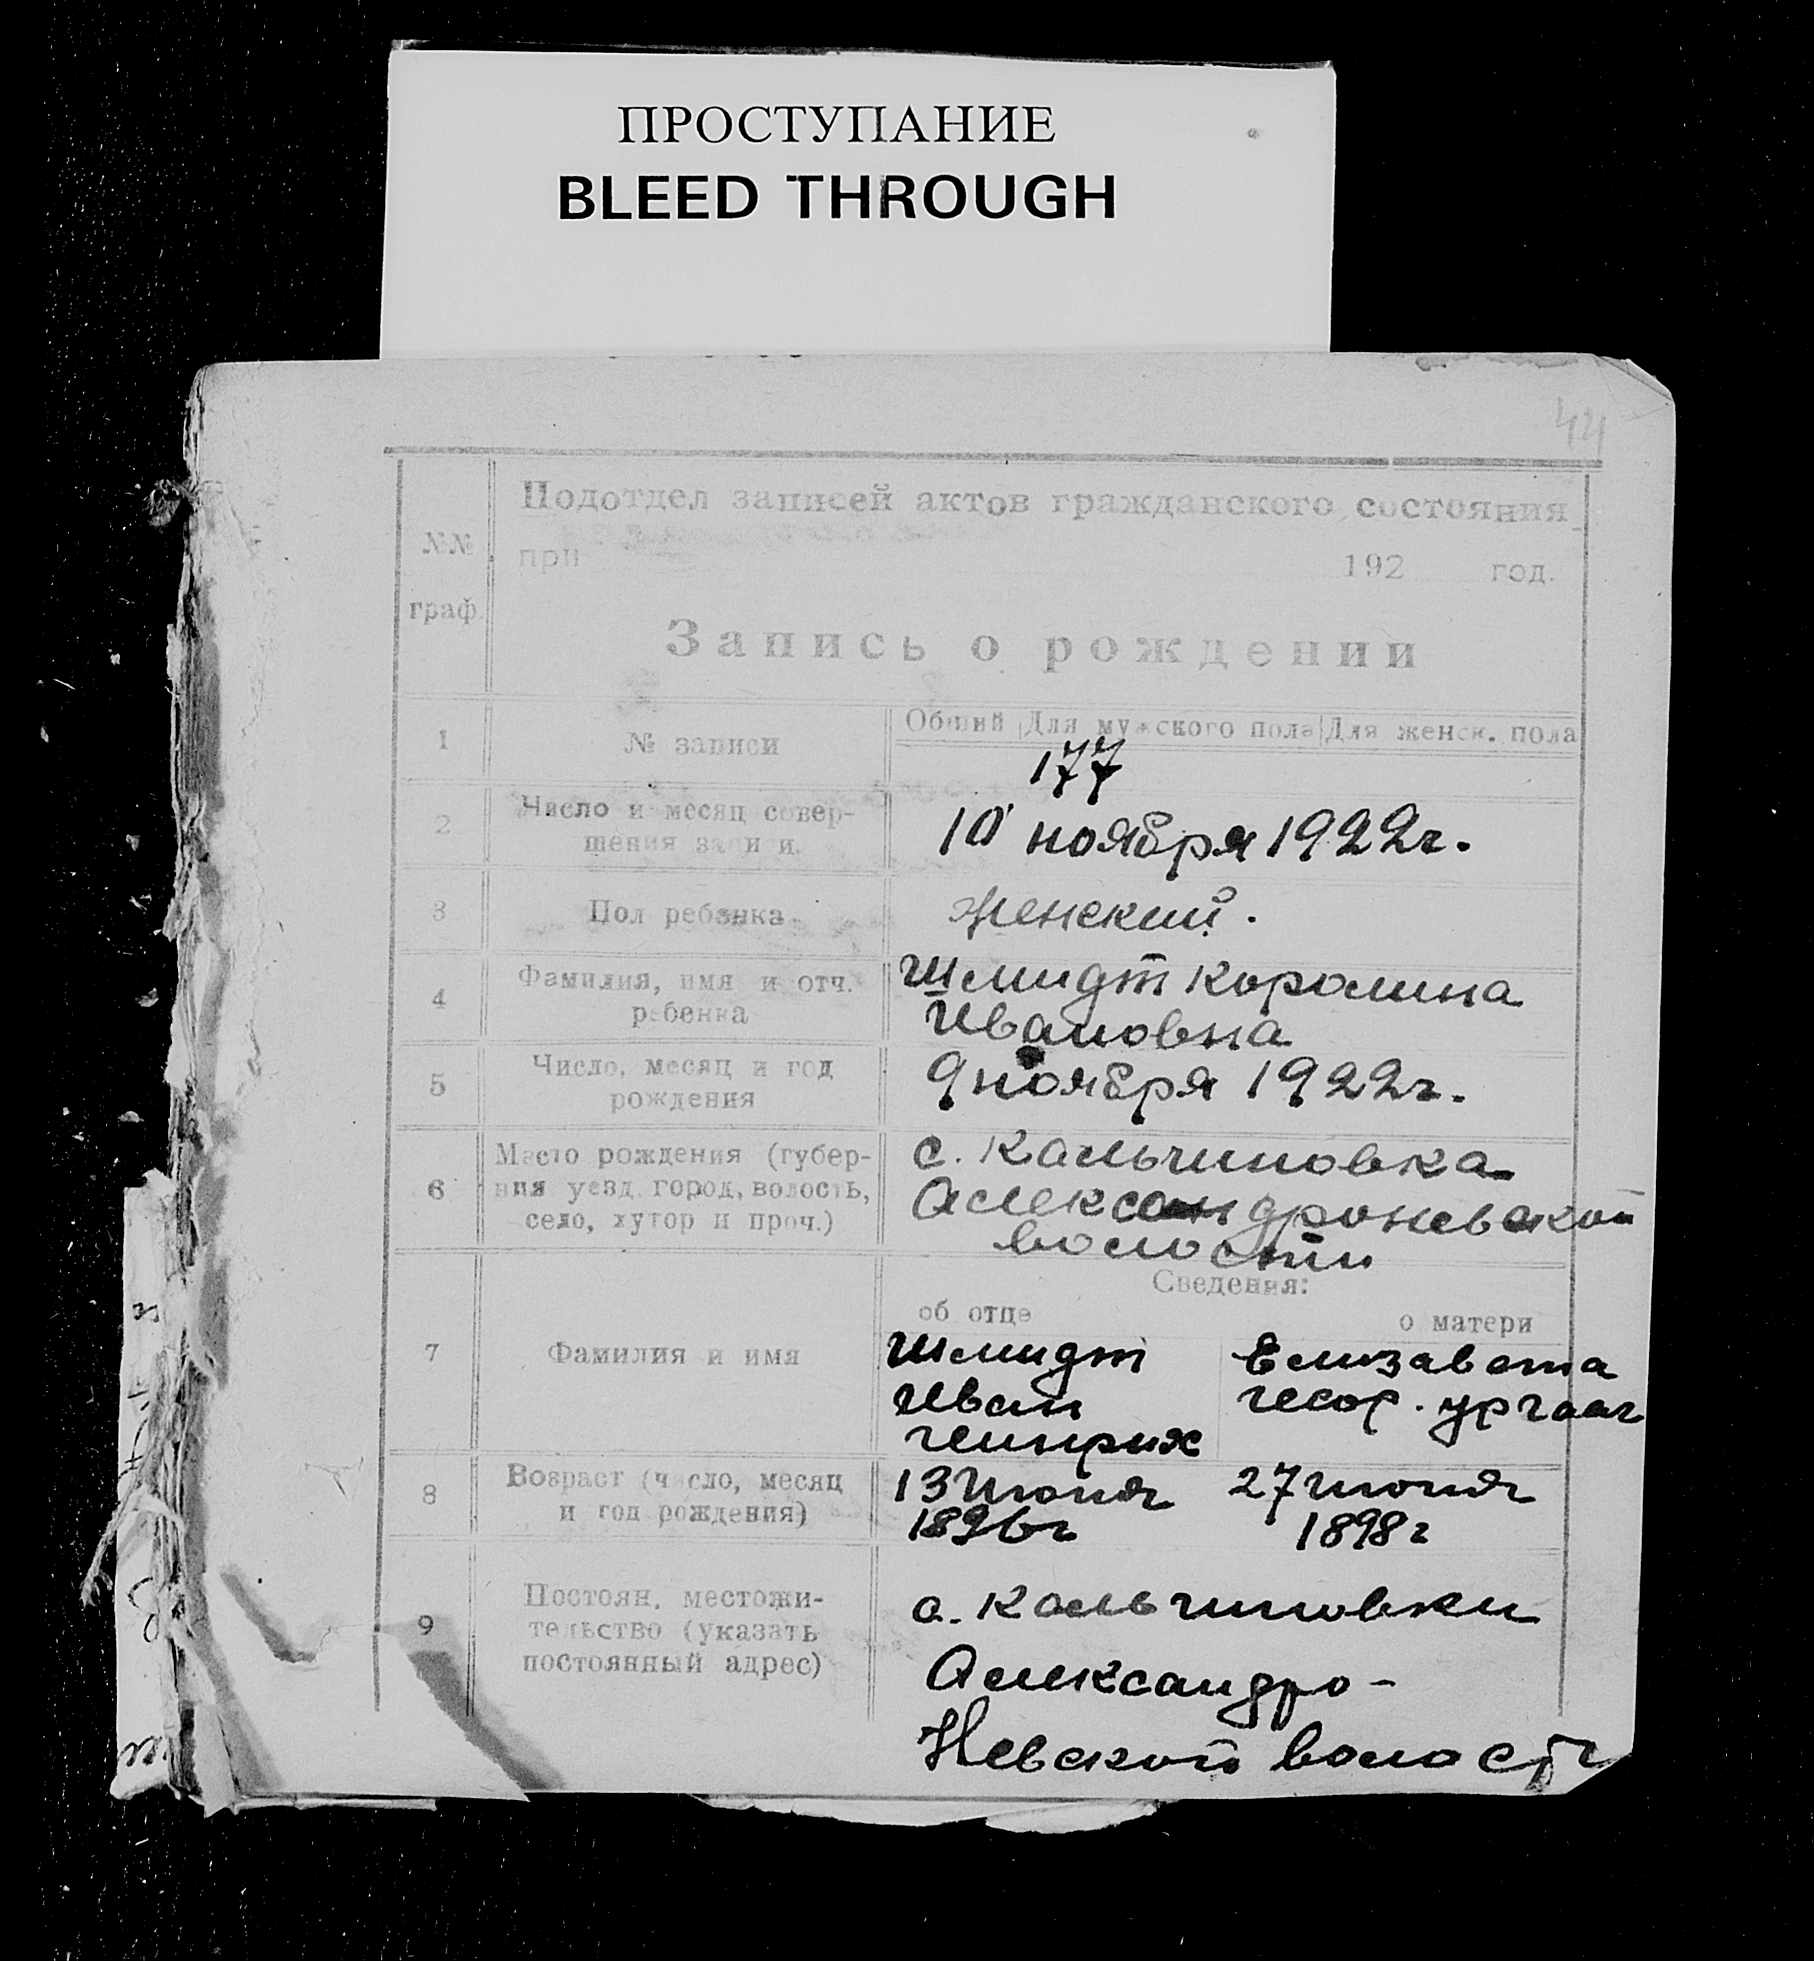 ПРОСТУПАНИЕ
BLEED THROUGH
44
Подотдел записей актов гражданского состояния
№№
при 192 год.
граф.
Запись о рождении
Общий Для мужского пола Для женск. пола
1 № записи
177
2 Число и месяц совер-
шения записи.
10 ноября 1922г.
3 Пол ребенка
женский.
4 Фамилия, имя и отч.
ребенка
Шмидт Каролина
Ивановна
5 Число, месяц и год
рождения
9 ноября 1922г.
6 Место рождения (губер-
ния уезд, город, волость,
село, хутор и проч.)
с. Кальчиновка
Александроневской
волости
Сведения:
об отце о матери
7 Фамилия и имя
Шмидт Елизавета
Иван
Генрих
8 Возраст (число, месяц
и год рождения)
13 Июня 27 июня
1896г 1898г
9 Постоян. местожи-
тельство (указать
постоянный адрес)
с. Кальчиновки
Александро-
Невской волост